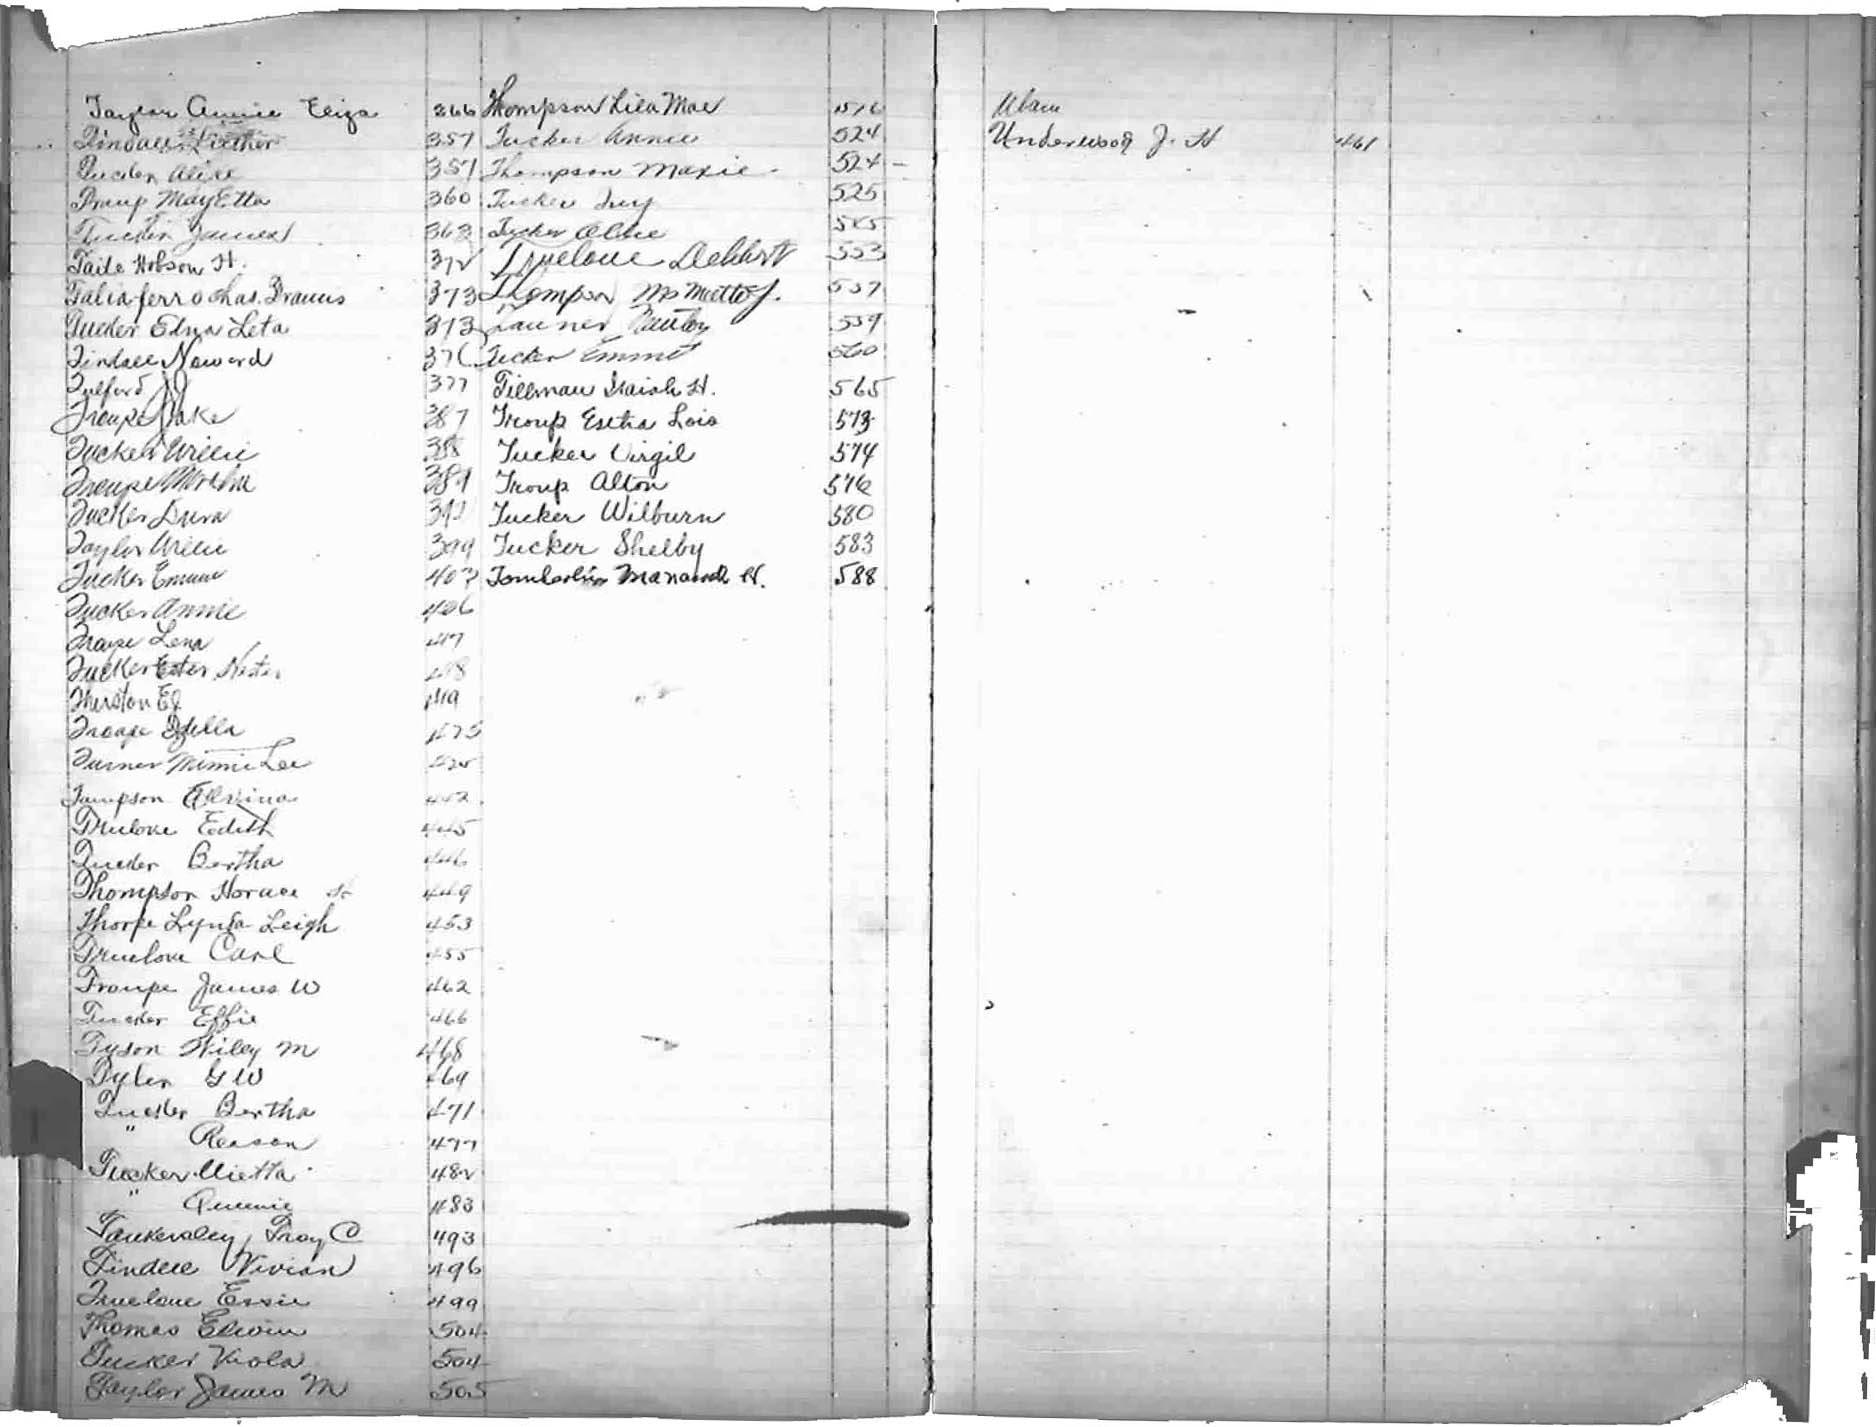 Taylor Annie Eliza 266
Tindall Luther 357
Tucker Alice 357
Troup MayEtta 360
Tucker James 363
Taite Hobson H. 372
Taliaferro Chas. 373
Tucker Edna Leta 373
Tindall Howard 376
Telford J J 377
Troupe Jake 387
Tucker Willie 388
Troupe 389
Tucker Dura 392
Taylor Willie 399
Tucker Emma 403
Tucker Annie 406
Troupe Lena 417
Tucker Ester 418
Thurston Ed 419
Troupe Idella 425
Turner Minnie Lee 425
Tompson Elvina 442
Trulove Edith 445
Tucker Bertha 446
Thompson Horace Sr 449
Thorpe Lynda Leigh 453
Truelove Carl 455
Troupe James W 462
Tucker Effie 466
Tyson Wiley M 468
Tyler G W 469
Tucker Bertha 471
" Reason 477
Tucker Mietta 482
" Queenie 483
Tankersley Troy C 493
Tindell Vivian 496
Truelove Essie 499
Thomas Edwin 504
Tucker Viola 504
Taylor James M 505
Thompson Lila Mae 516
Tucker Annie 524
Thompson Maxie 524
Tucker Guy 525
Tucker Ollie 525
Truelove Delbert 553
Thompson Mrs Mattie J. 557
Tanner 559
Tucker Emmet 560
Tillman Isaiah H. 565
Troup Esta Lois 573
Tucker Virgil 574
Troup Alton 576
Tucker Wilburn 580
Tucker Shelby 583
Tomberlin H. 588
Ulam
Underwood J. H 461